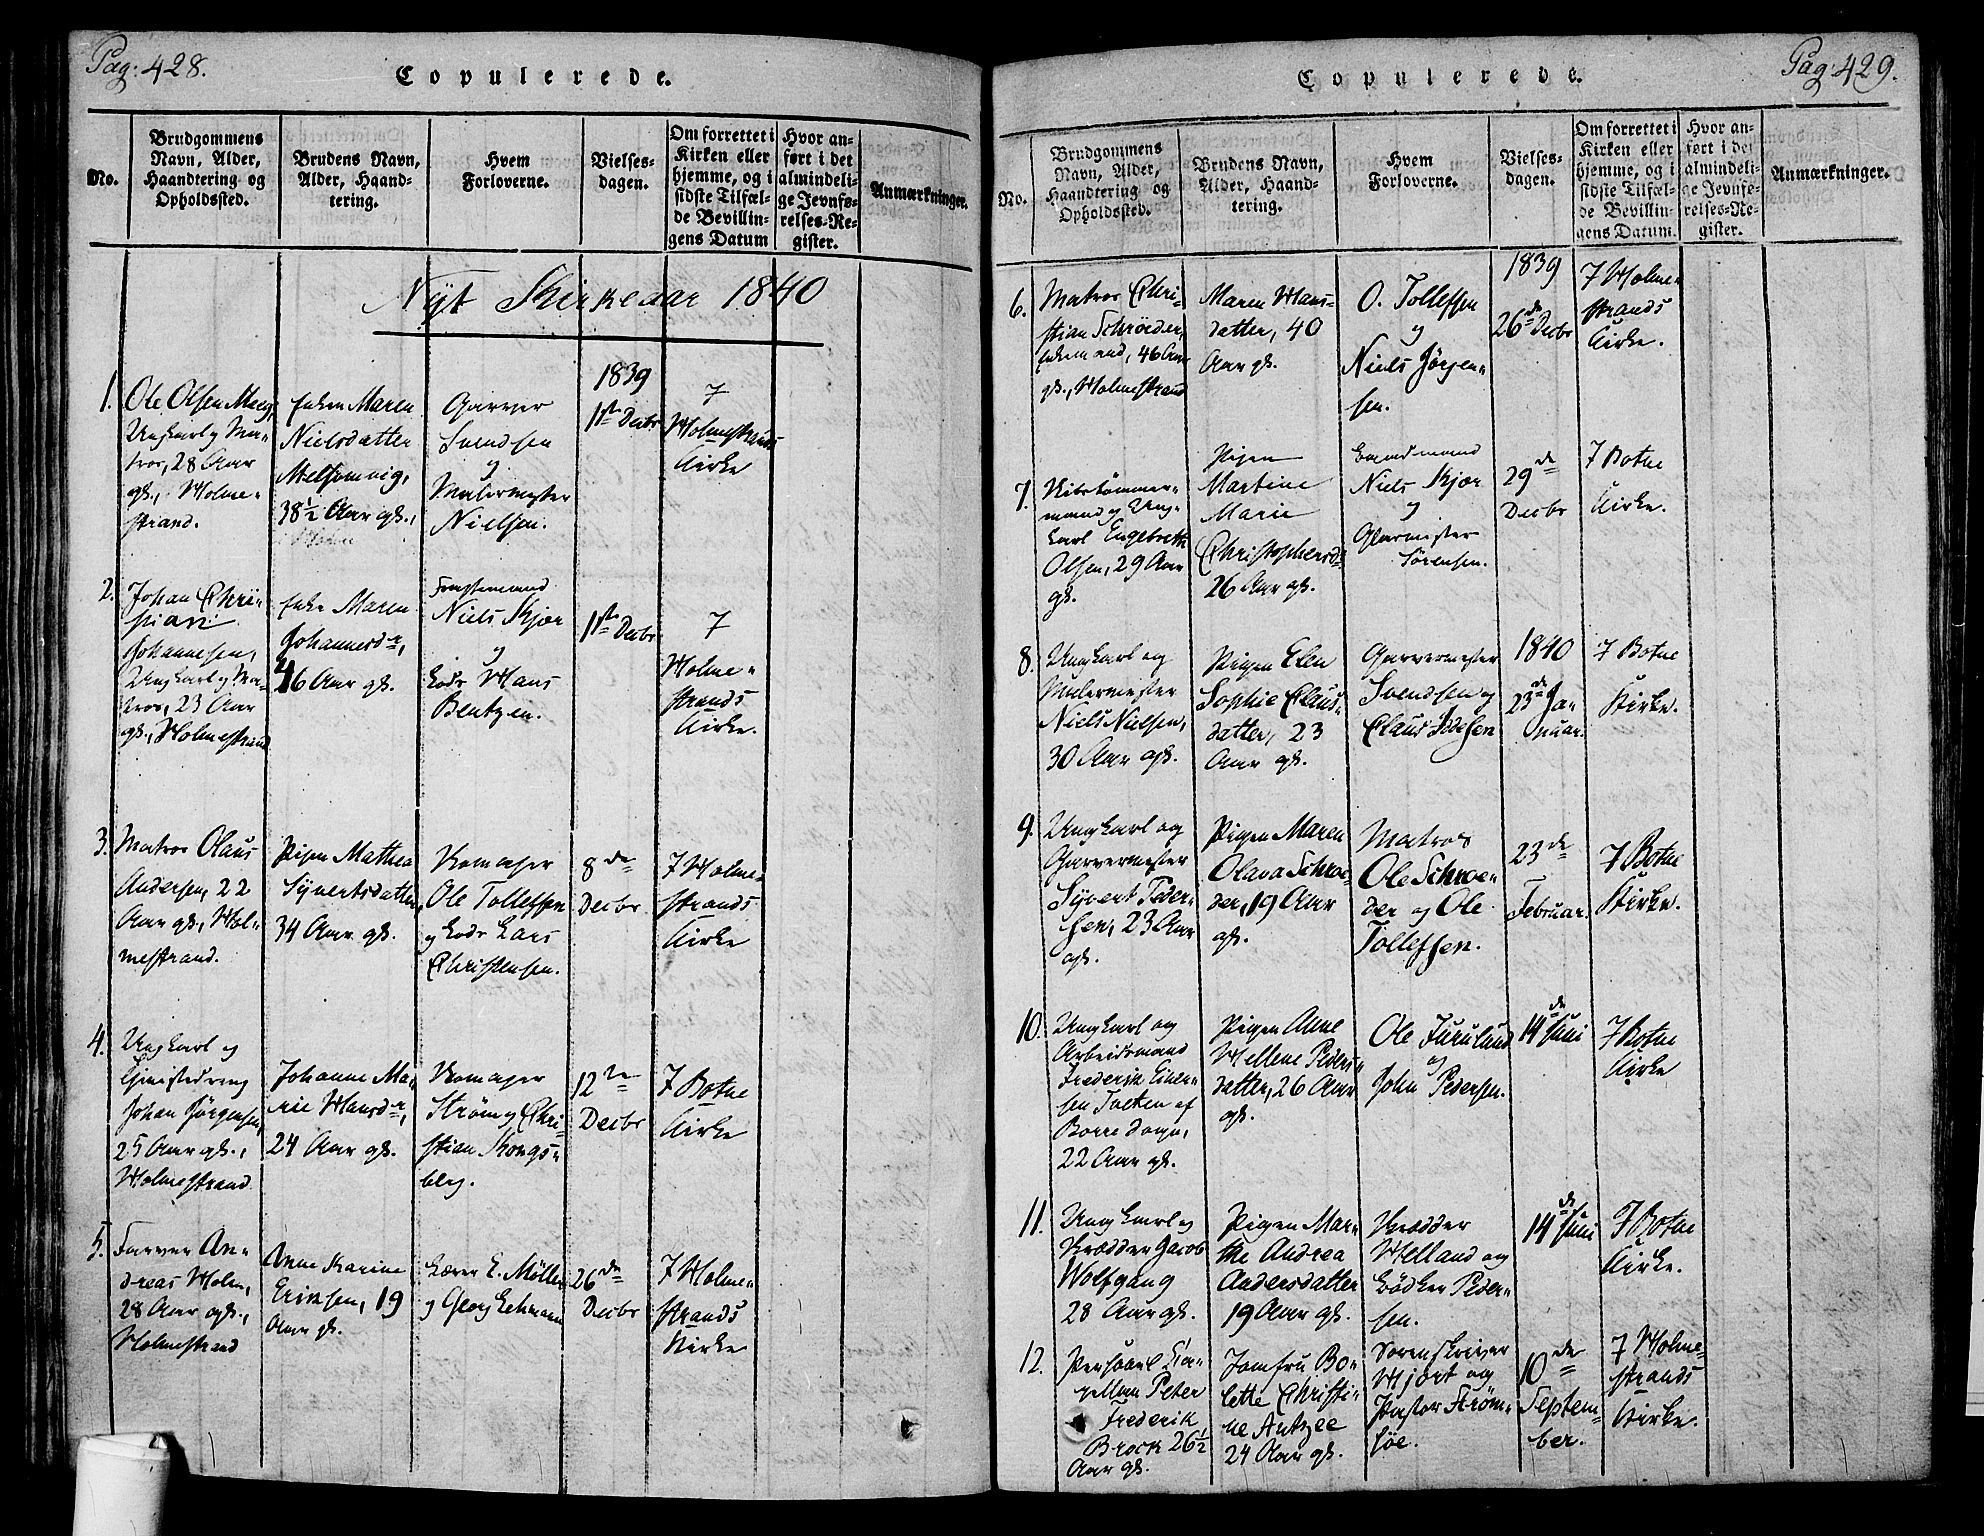 Pag: 428.
Copulerede.
No.
Brudgommens
Navn, Alder,
Haandtering og
Opholdssted.
Brudens Navn,
Alder, Haand-
tering.
Hvem
Forloverne.
Vielses-
dagen.
Om forrettet i
Kirken eller
hjemme, og i
sidste Tilfæl-
de Bevillin-
gens Datum
Hvor an-
ført i det
almindeli-
ge Jevnfø-
relses-Re-
gister.
Anmærkninger.
Nyt Kirkeaar 1840
1.
Ole Olsen
Ungkarl og Ma-
tros, 28 Aar
gl., Holme-
strand.
Enken Maren
Nielsdatter
38 1/2 Aar gl.,
Garver
Svendsen
og
Malermester
Nielsen.
1839
1ste Decbr
I
Holmestrands
Kirke
2.
Johan Chri-
stian
Johannesen,
Ungkarl og Ma-
tros, 23 Aar
gl., Holmestrand
Enke Maren
Johannesdr,
46 Aar gl.
Niels Kjær
og
Lods Hans
Bentzen.
1ste Decbr
I
Holme-
strands
Kirke.
3.
Matros Olaus
Andersen, 22
Aar gl., Hol-
mestrand.
Pigen Mathea
Syvertsdatter,
34 Aar gl.
Ole Tollefsen
og Lods Lars
Christensen.
8de
Decbr
I Holme-
strands
Kirke
4.
Ungkarl og
Johan Jørgensen,
25 Aar gl.,
Holmestrand
Johanne Ma-
rie Hansdr,
24 Aar gl.
Strøm og Chri-
stian Kongs-
berg.
12te
Decbr
I Botne
Kirke
5.
Farver An-
dreas Holm,
28 Aar gl.,
Holmestrand
Anne Karine
Eriksen, 19
Aar gl.
Lærer E. Møller
og Georg Lehmann
26de
Decbr
I Holme-
strands
Kirke
Pag: 429.
Copulerede.
No.
Brudgommens
Navn, Alder,
Haandtering og
Opholdssted.
Brudens Navn,
Alder, Haand-
tering.
Hvem
Forloverne.
Vielses-
dagen.
Om forrettet i
Kirken eller
hjemme, og i
sidste Tilfæl-
de Bevillin-
gens Datum.
Hvor an-
ført i det
almindeli-
ge Jevnfø-
relses-Re-
gister.
Anmærkninger.
6.
Matros Chri-
stian Schrøeder,
Enkemand, 46 Aar
gl., Holmestrand
Maren Hans-
datter, 40
Aar gl.
O. Tollefsen
og
Niels Jørgen-
sen.
1839
26de Decbr
I Holme-
strands
Kirke.
7.
mand og Ung-
karl Engebreth
Olsen, 29 Aar
gl.
Pigen
Martine
Marie
Christophersdr
26 Aar gl.
Niels Kjær
og
Glarmester
Sørensen.
29de
Decbr
I Botne
Kirke.
8.
Ungkarl og
Malermester
Niels Nielsen,
30 Aar gl.
Pigen Elen
Sophie Claus-
datter, 23
Aar gl.
Garvermester
Svendsen og
Claus
1840
23de Ja-
nuar.
I Botne
Kirke.
9.
Ungkarl og
Garvermester
Syvert Peder-
sen, 23 Aar
gl.
Pigen Maren
Olava Schroe-
der, 19 Aar
gl.
Matros
Ole Schroe-
der og Ole
Tollefsen.
23de
Februar.
I Botne
Kirke.
10.
Ungkarl og
Arbeidsmand
Frederik
sen af
Borre Sogn,
22 Aar gl.
Pigen Anne
Hellene Peders-
datter, 26 Aar
gl.
Ole Furulund
og
John Pedersen.
14de Juni
I Botne
Kirke
11.
Ungkarl og
Skrædder Jacob
Wolfgang
28 Aar gl.
Pigen Mar-
the Andrea
Andersdatter
19 Aar gl.
Skrædder
Helland og
Bødker Peder-
sen.
14de Juni
I Botne
Kirke.
12.
Personel Ca-
pellan Peter
Frederik
Brock 26 1/2
Aar gl.
Jomfru Bo-
lette Christi-
ne Autzee
24 Aar gl.
Sorenskriver
Hjort og
Pastor Strøm-
søe.
10de
Septem-
ber.
I Holme-
strands
Kirke.